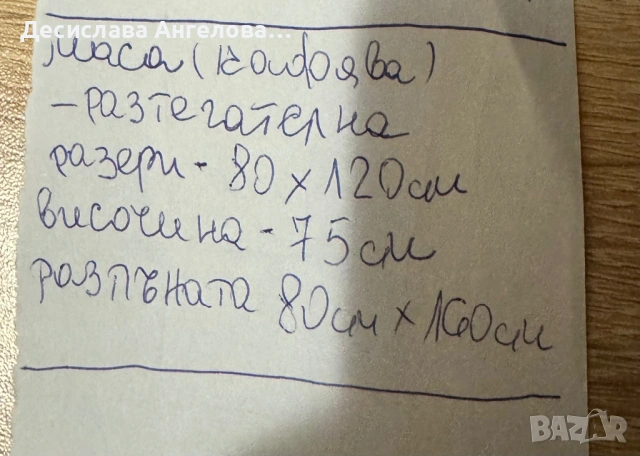 Десислава Ангелова...
маса (кафява)
- разтегателна
разери - 80 x 120см
височина - 75см
разпъната 80см x 160см
BAZAR